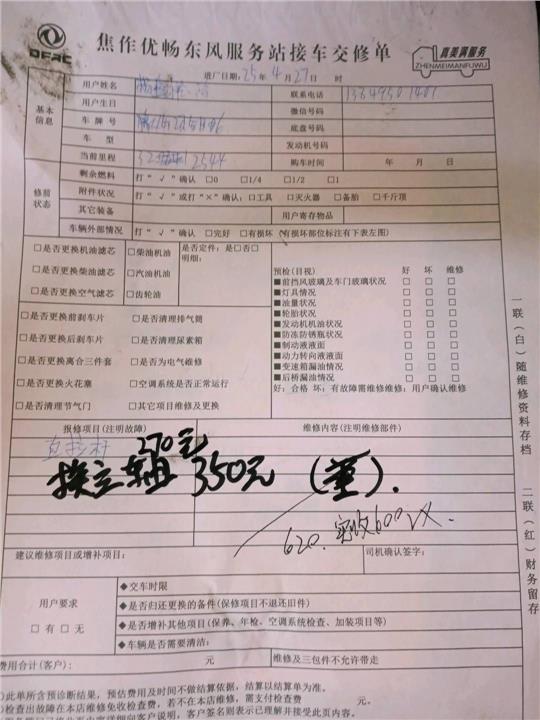 DFAC
焦作优畅东风服务站接车交修单
真美满服务
ZHENMEIMANFUWU
进厂日期：25年4月27日 时
基本信息
用户姓名
联系电话
用户生日
微信号码
车 牌 号
底盘号码
车 型
发动机号码
当前里程
购车时间 年 月 日
修前状态
剩余燃料 打“√”确认 □0 □1/4 □1/2 □1
附件状况 打“√”或打“×”确认：□工具 □灭火器 □备胎 □千斤顶
其它装备 用户寄存物品
车辆外部情况 打“√”确认 □完好 □有损坏（有损坏部位标注有下表左图）
□是否更换机油滤芯 □柴油机油 是否定件：是□否□
明细：
□是否更换柴油滤芯 □汽油机油
□是否更换空气滤芯 □齿轮油
□是否更换前刹车片 □是否清理排气筒
□是否更换后刹车片 □是否清理尿素箱
□是否更换离合三件套 □是否为电气维修
□是否更换火花塞 □空调系统是否正常运行
□是否清理节气门 □其它项目维修及更换
预检(目视) 好 坏 维修
■前挡风玻璃及车门玻璃状况 □ □ □
■灯具情况 □ □ □
■油量状况 □ □ □
■轮胎状况 □ □ □
■发动机机油状况 □ □ □
■防冻防锈瓶状况 □ □ □
■制动液液面 □ □ □
■动力转向液液面 □ □ □
■变速箱漏油情况 □ □ □
■后桥漏油情况 □ □ □
好：合格 坏：有故障需维修维修：用户确认维修
报修项目(注明故障) 维修内容(注明维修部件)
直拉杆 270元
换立车由 350元
620. 实收600
建议维修项目或增补项目： 司机确认签字：
用户要求
□有 □无
◆交车时限
◆是否归还更换的备件(保修项目不退还旧件)
◆是否增补其他项目(保养、年检、空调系统检查、加装项目等)
◆车辆是否需要清洁：
费用合计(客户)： 元 维修及三包件不允许带走
)此单所含预诊断结果，预估费用及时间不做结算依据，结算以结算单为准。
)检查出故障在本店维修免收检查费，若不在本店维修，需支付检查费 元。
一联（白）随维修资料存档
二联（红）财务留存